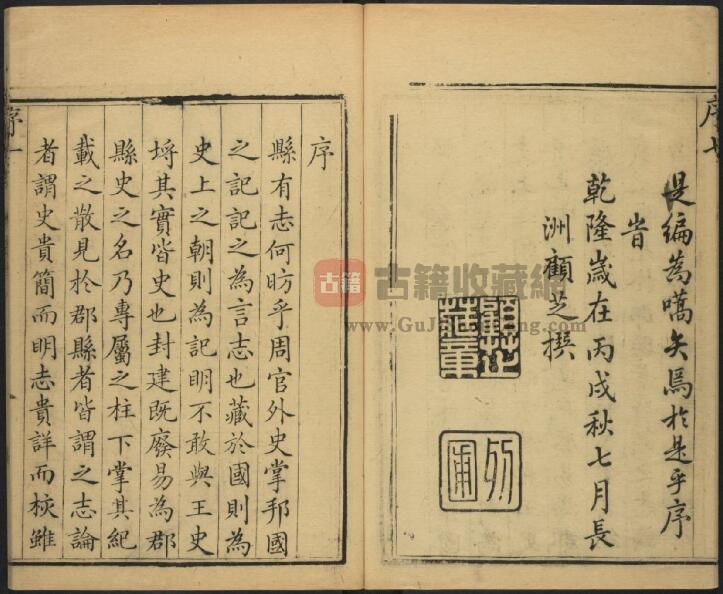 序七
是編為嚆矢焉於是乎序
旹
乾隆歲在丙戌秋七月長
洲顧芝撰
序
縣有志何昉乎周官外史掌邦國
之記記之為言志也藏於國則為
史上之朝則為記明不敢與王史
埒其實皆史也封建既廢易為郡
縣史之名乃專屬之柱下掌其紀
載之散見於郡縣者皆謂之志論
者謂史貴簡而明志貴詳而核雖
序一
古籍
古籍收藏網